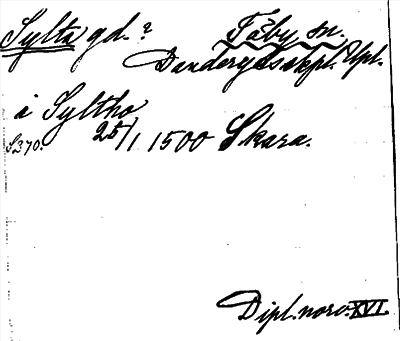 Sylta gd.? Täby sn.
Danderyds skpl. Upl.
i Syltho
S. 370. 25/1 1500 Skara.
Dipl. norv. XVI.